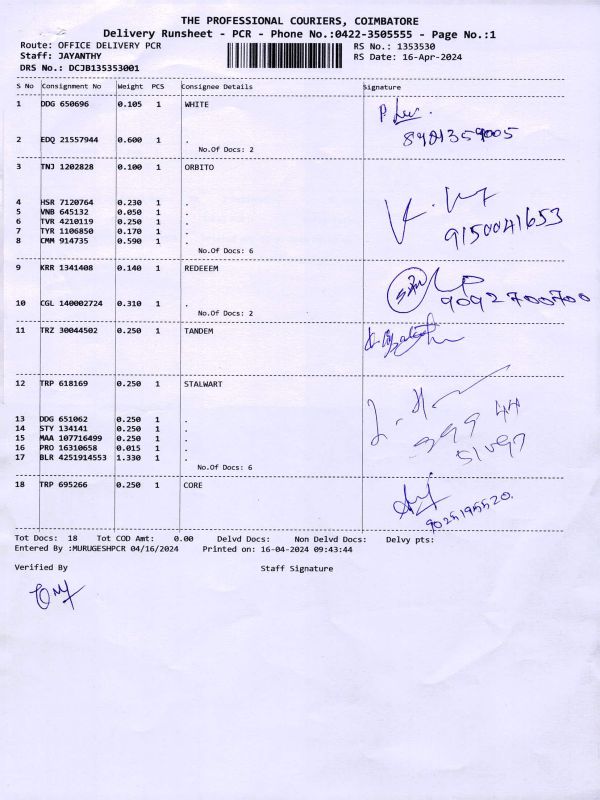 THE PROFESSIONAL COURIERS, COIMBATORE
Delivery Runsheet - PCR - Phone No.:0422-3505555 - Page No.:1
Route: OFFICE DELIVERY PCR RS No.: 1353530
Staff: JAYANTHY RS Date: 16-Apr-2024
DRS No.: DCJB135353001
S No Consignment No Weight PCS Consignee Details Signature
1 DDG 650696 0.105 1 WHITE
2 EDQ 21557944 0.600 1 .
No.Of Docs: 2
3 TNJ 1202828 0.100 1 ORBITO
4 HSR 7120764 0.230 1 .
5 VNB 645132 0.050 1 .
6 TVR 4210119 0.250 1 .
7 TYR 1106850 0.170 1 .
8 CMM 914735 0.590 1 .
9150041653
No.Of Docs: 6
9 KRR 1341408 0.140 1 REDEEEM
10 CGL 140002724 0.310 1 .
9092700700
No.Of Docs: 2
11 TRZ 30044502 0.250 1 TANDEM
12 TRP 618169 0.250 1 STALWART
13 DDG 651062 0.250 1 .
14 STY 134141 0.250 1 .
15 MAA 107716499 0.250 1 .
16 PRO 16310658 0.015 1 .
17 BLR 4251914553 1.330 1 .
No.Of Docs: 6
18 TRP 695266 0.250 1 CORE
9025195520.
Tot Docs: 18 Tot COD Amt: 0.00 Delvd Docs: Non Delvd Docs: Delvy pts:
Entered By :MURUGESHPCR 04/16/2024 Printed on: 16-04-2024 09:43:44
Verified By Staff Signature